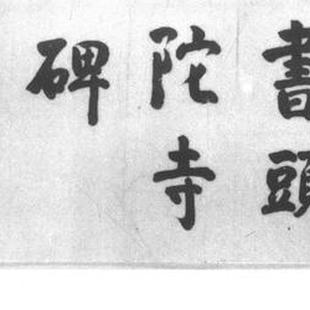 書頭
陀寺
碑